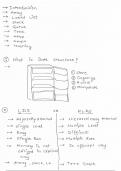 → Introduction
→ Array
→ Linked List
→ Stack
→ Queue
→ Tree
→ Heap
→ Graph
→ Hashing
① What is Data Structure?
① Store
② Organize
③ Access
④ Manipulate
② L.D.S vs N.L.D.S
→ Sequentially ordered
→ Single level
→ Easy
→ Single Run
→ Memory is not
→ Array, Stack, L.L
→ Multiple level
→ Difficult
→ Multiple Run
→ In efficient way
→ Tree, Graph